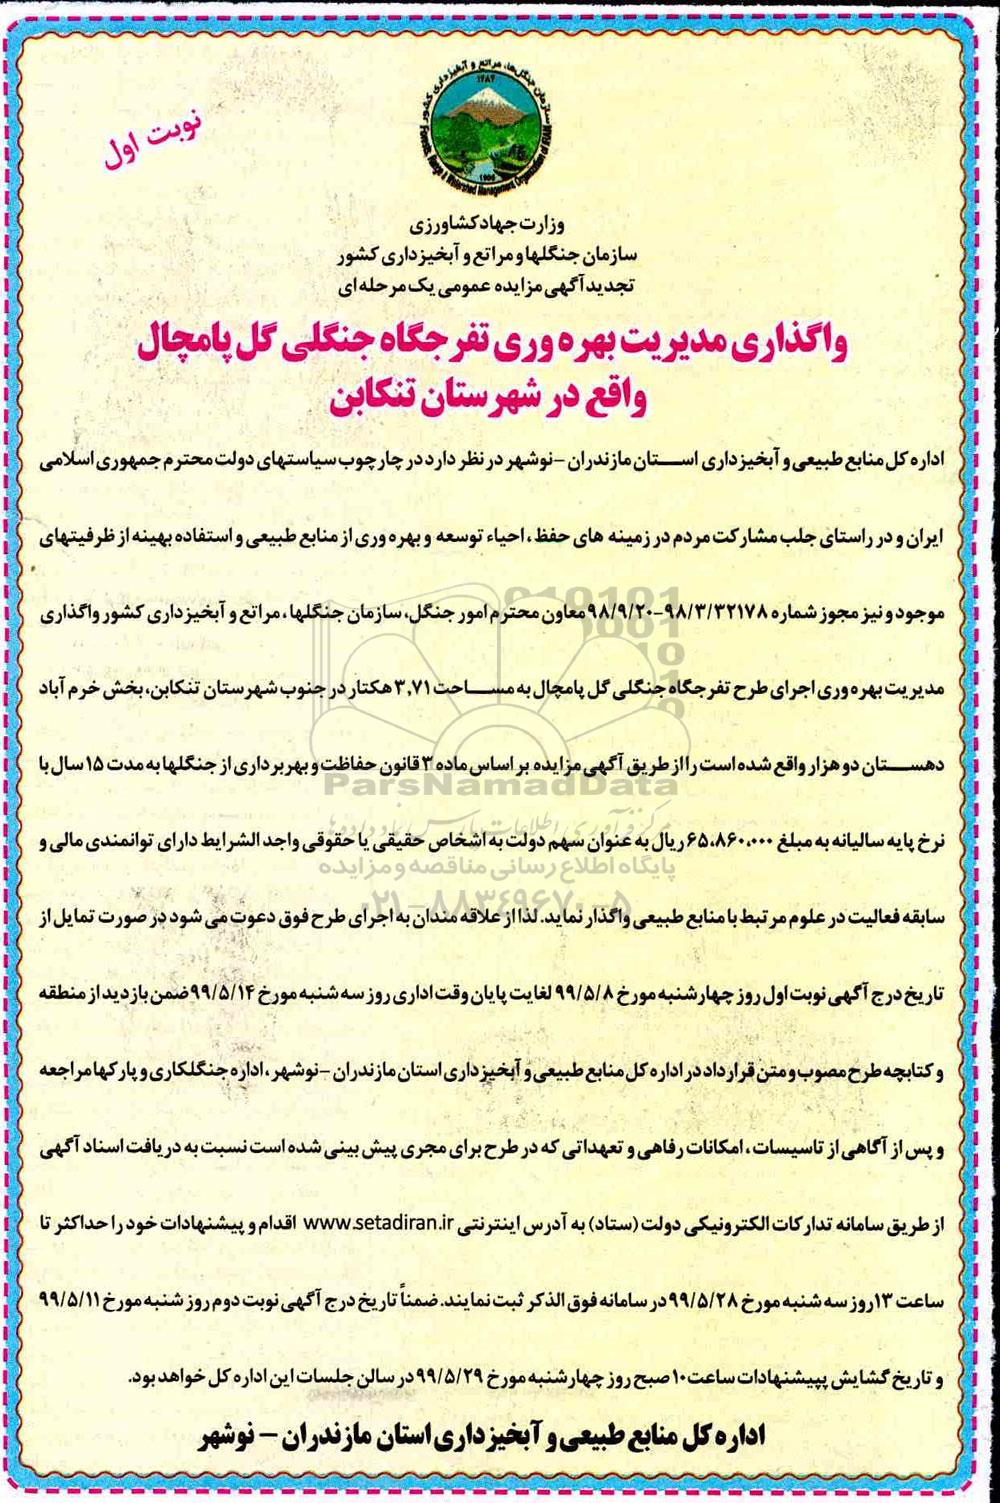 نوبت اول
سازمان جنگل‌ها، مراتع و آبخیزداری کشور
۱۲۸۴
1906
Forests, Range & Watershed Management Organization of IRAN
وزارت جهاد کشاورزی
سازمان جنگلها و مراتع و آبخیزداری کشور
تجدید آگهی مزایده عمومی یک مرحله ای
واگذاری مدیریت بهره وری تفرجگاه جنگلی گل پامچال
واقع در شهرستان تنکابن
اداره کل منابع طبیعی و آبخیزداری استان مازندران -نوشهر در نظر دارد در چارچوب سیاستهای دولت محترم جمهوری اسلامی
ایران و در راستای جلب مشارکت مردم در زمینه های حفظ، احیاء توسعه و بهره وری از منابع طبیعی و استفاده بهینه از ظرفیتهای
موجود و نیز مجوز شماره ۹۸/۳/۳۲۱۷۸-۹۸/۹/۲۰ معاون محترم امور جنگل، سازمان جنگلها، مراتع و آبخیزداری کشور واگذاری
مدیریت بهره وری اجرای طرح تفرجگاه جنگلی گل پامچال به مساحت ۳,۷۱ هکتار در جنوب شهرستان تنکابن، بخش خرم آباد
دهستان دو هزار واقع شده است را از طریق آگهی مزایده بر اساس ماده ۳ قانون حفاظت و بهربرداری از جنگلها به مدت ۱۵ سال با
ParsNamadData
نرخ پایه سالیانه به مبلغ ۶۵،۸۶۰،۰۰۰ ریال به عنوان سهم دولت به اشخاص حقیقی یا حقوقی واجد الشرایط دارای توانمندی مالی و
پایگاه اطلاع رسانی مناقصه و مزایده
۰۲۱-۸۸۳۴۹۶۷۰-۵
سابقه فعالیت در علوم مرتبط با منابع طبیعی واگذار نماید. لذا از علاقه مندان به اجرای طرح فوق دعوت می شود در صورت تمایل از
تاریخ درج آگهی نوبت اول روز چهارشنبه مورخ ۹۹/۵/۸ لغایت پایان وقت اداری روز سه شنبه مورخ ۹۹/۵/۱۴ ضمن بازدید از منطقه
و کتابچه طرح مصوب و متن قرارداد در اداره کل منابع طبیعی و آبخیزداری استان مازندران -نوشهر، اداره جنگلکاری و پارکها مراجعه
و پس از آگاهی از تاسیسات، امکانات رفاهی و تعهداتی که در طرح برای مجری پیش بینی شده است نسبت به دریافت اسناد آگهی
از طریق سامانه تدارکات الکترونیکی دولت (ستاد) به آدرس اینترنتی www.setadiran.ir اقدام و پیشنهادات خود را حداکثر تا
ساعت ۱۳ روز سه شنبه مورخ ۹۹/۵/۲۸ در سامانه فوق الذکر ثبت نمایند. ضمناً تاریخ درج آگهی نوبت دوم روز شنبه مورخ ۹۹/۵/۱۱
و تاریخ گشایش پپیشنهادات ساعت ۱۰ صبح روز چهارشنبه مورخ ۹۹/۵/۲۹ در سالن جلسات این اداره کل خواهد بود.
اداره کل منابع طبیعی و آبخیزداری استان مازندران - نوشهر